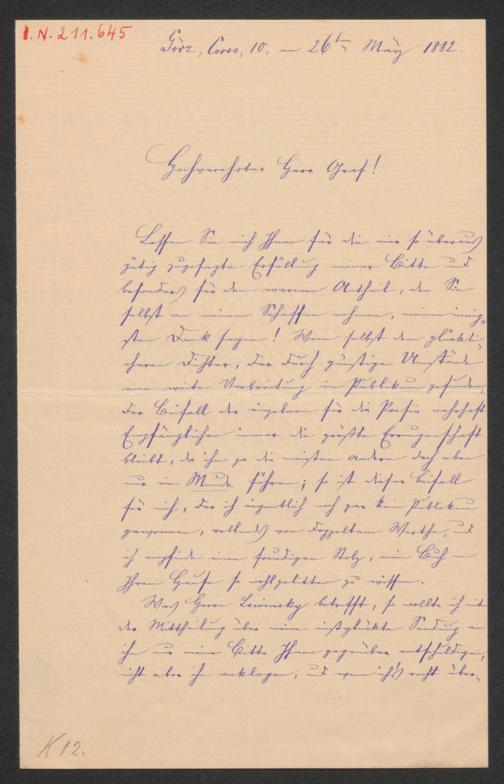 I.N. 211.645
Görz, Corso, 10. – 26ten März 1882.
Hochverehrter Herr Graf!
Lassen Sie mich Ihnen für die mir so überaus
gütig zugesagte Erfüllung meiner Bitte und
besonders für den warmen Antheil, den Sie
selbst an meinem Schaffen nehmen, meinen innig-
sten Dank sagen! Wenn selbst dem glückli-
cheren Dichter, der durch günstige Umstände
eine weite Verbreitung im Publikum gefunden,
der Beifall der einzelnen für die Poesie wahrhaft
Empfänglichen immer die größte Errungenschaft
bleibt, da ihn ja die meisten andern doch eben
nur im Munde führen; so ist dieser Beifall
für mich, der ich eigentlich noch gar kein Publikum
gewonnen, vollends von doppeltem Werthe, und
ich empfinde einen freudigen Stolz, mein Buch in
Ihrem Hause so wohlgelitten zu wissen.
Was Herrn Lewinsky betrifft, so wollte ich mit
der Mittheilung über meine mißglückte Sendung an
ihn nur meine Bitte Ihnen gegenüber entschuldigen,
nicht aber ihn anklagen, und wenn ich's recht über-
K 12.